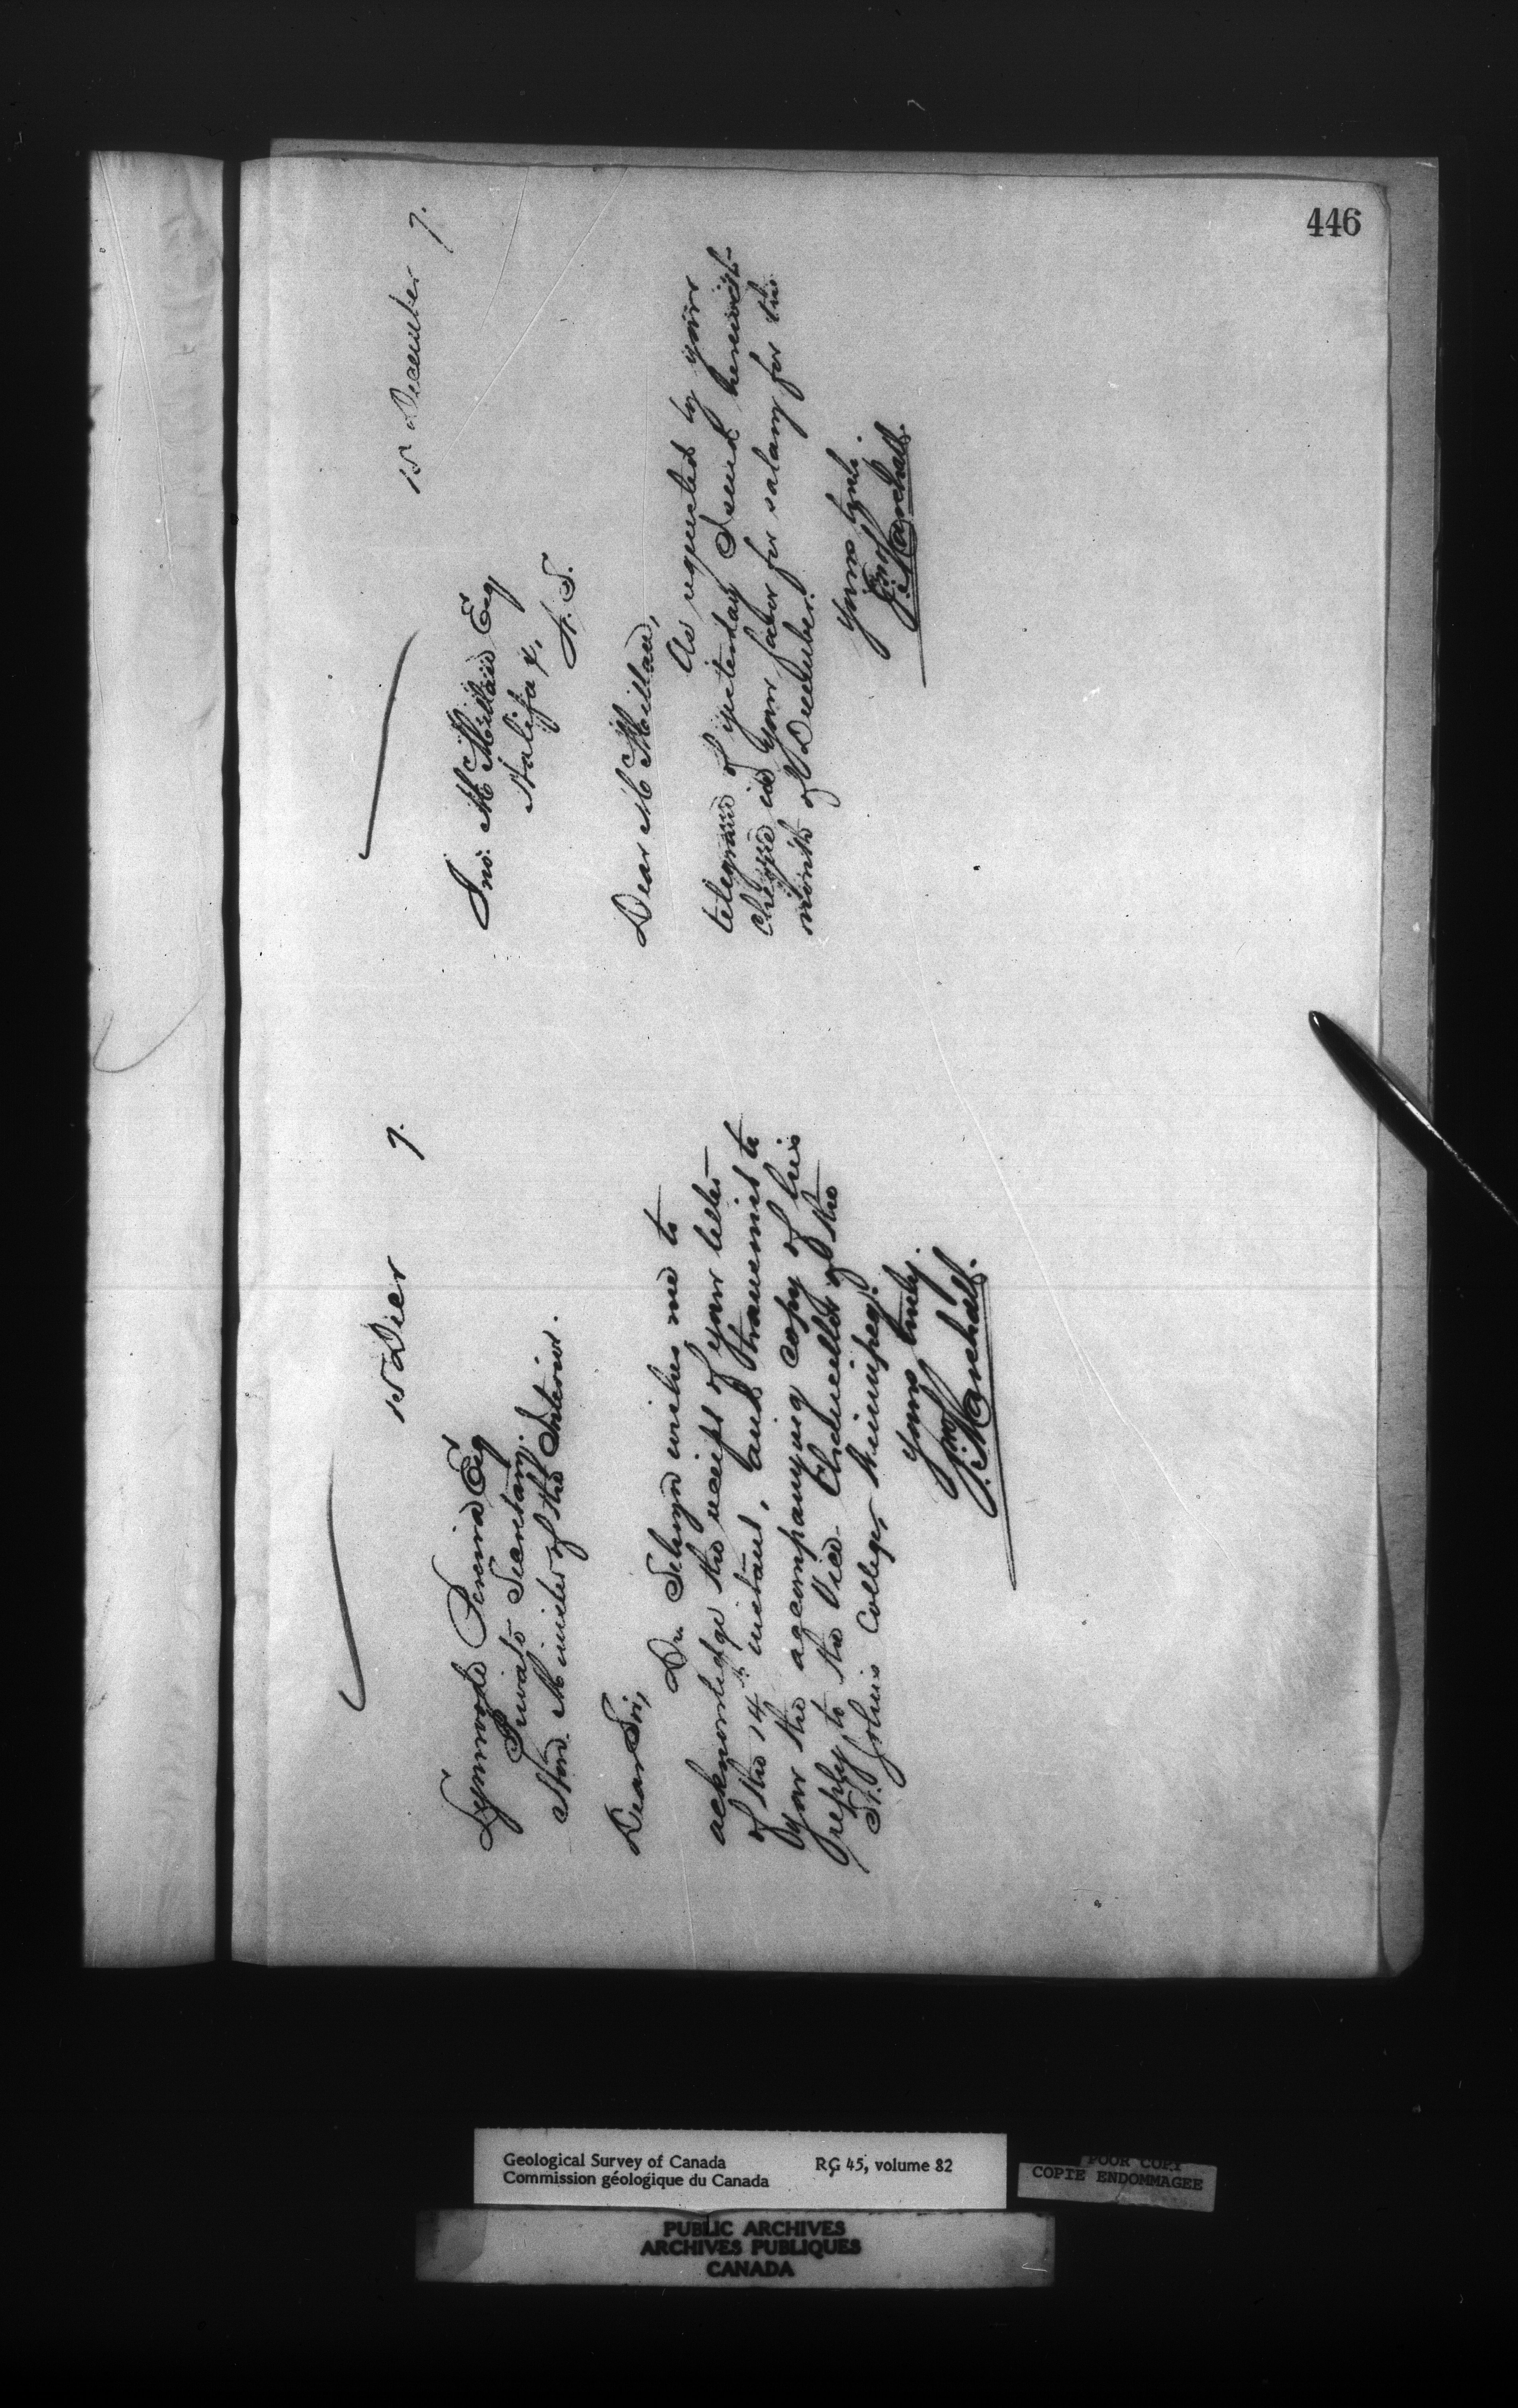 446
15 Decr 7.
Lynwode Pereira Esq
Private Secretary.
Hon. Minister of the Interior.
Dear Sir,
Dr. Selwyn wishes me to
acknowledge the receipt of your letter
of the 14th instant, and transmit to
you the accompanying copy of his
reply to the Vice Chancellor of the
St. John's College, Winnipeg.
Yours truly.
Jno. Marshall.
15 December 7.
Jno. McMillan Esq
Halifax,
N. S.
Dear McMillan,
As requested by your
telegram of yesterday I send herewith
cheque in your favor for salary for the
month of December.
Yours truly.
Jno. Marshall.
Geological Survey of Canada RG 45, volume 82
Commission géologique du Canada
POOR COPY
COPIE ENDOMMAGEE
PUBLIC ARCHIVES
ARCHIVES PUBLIQUES
CANADA